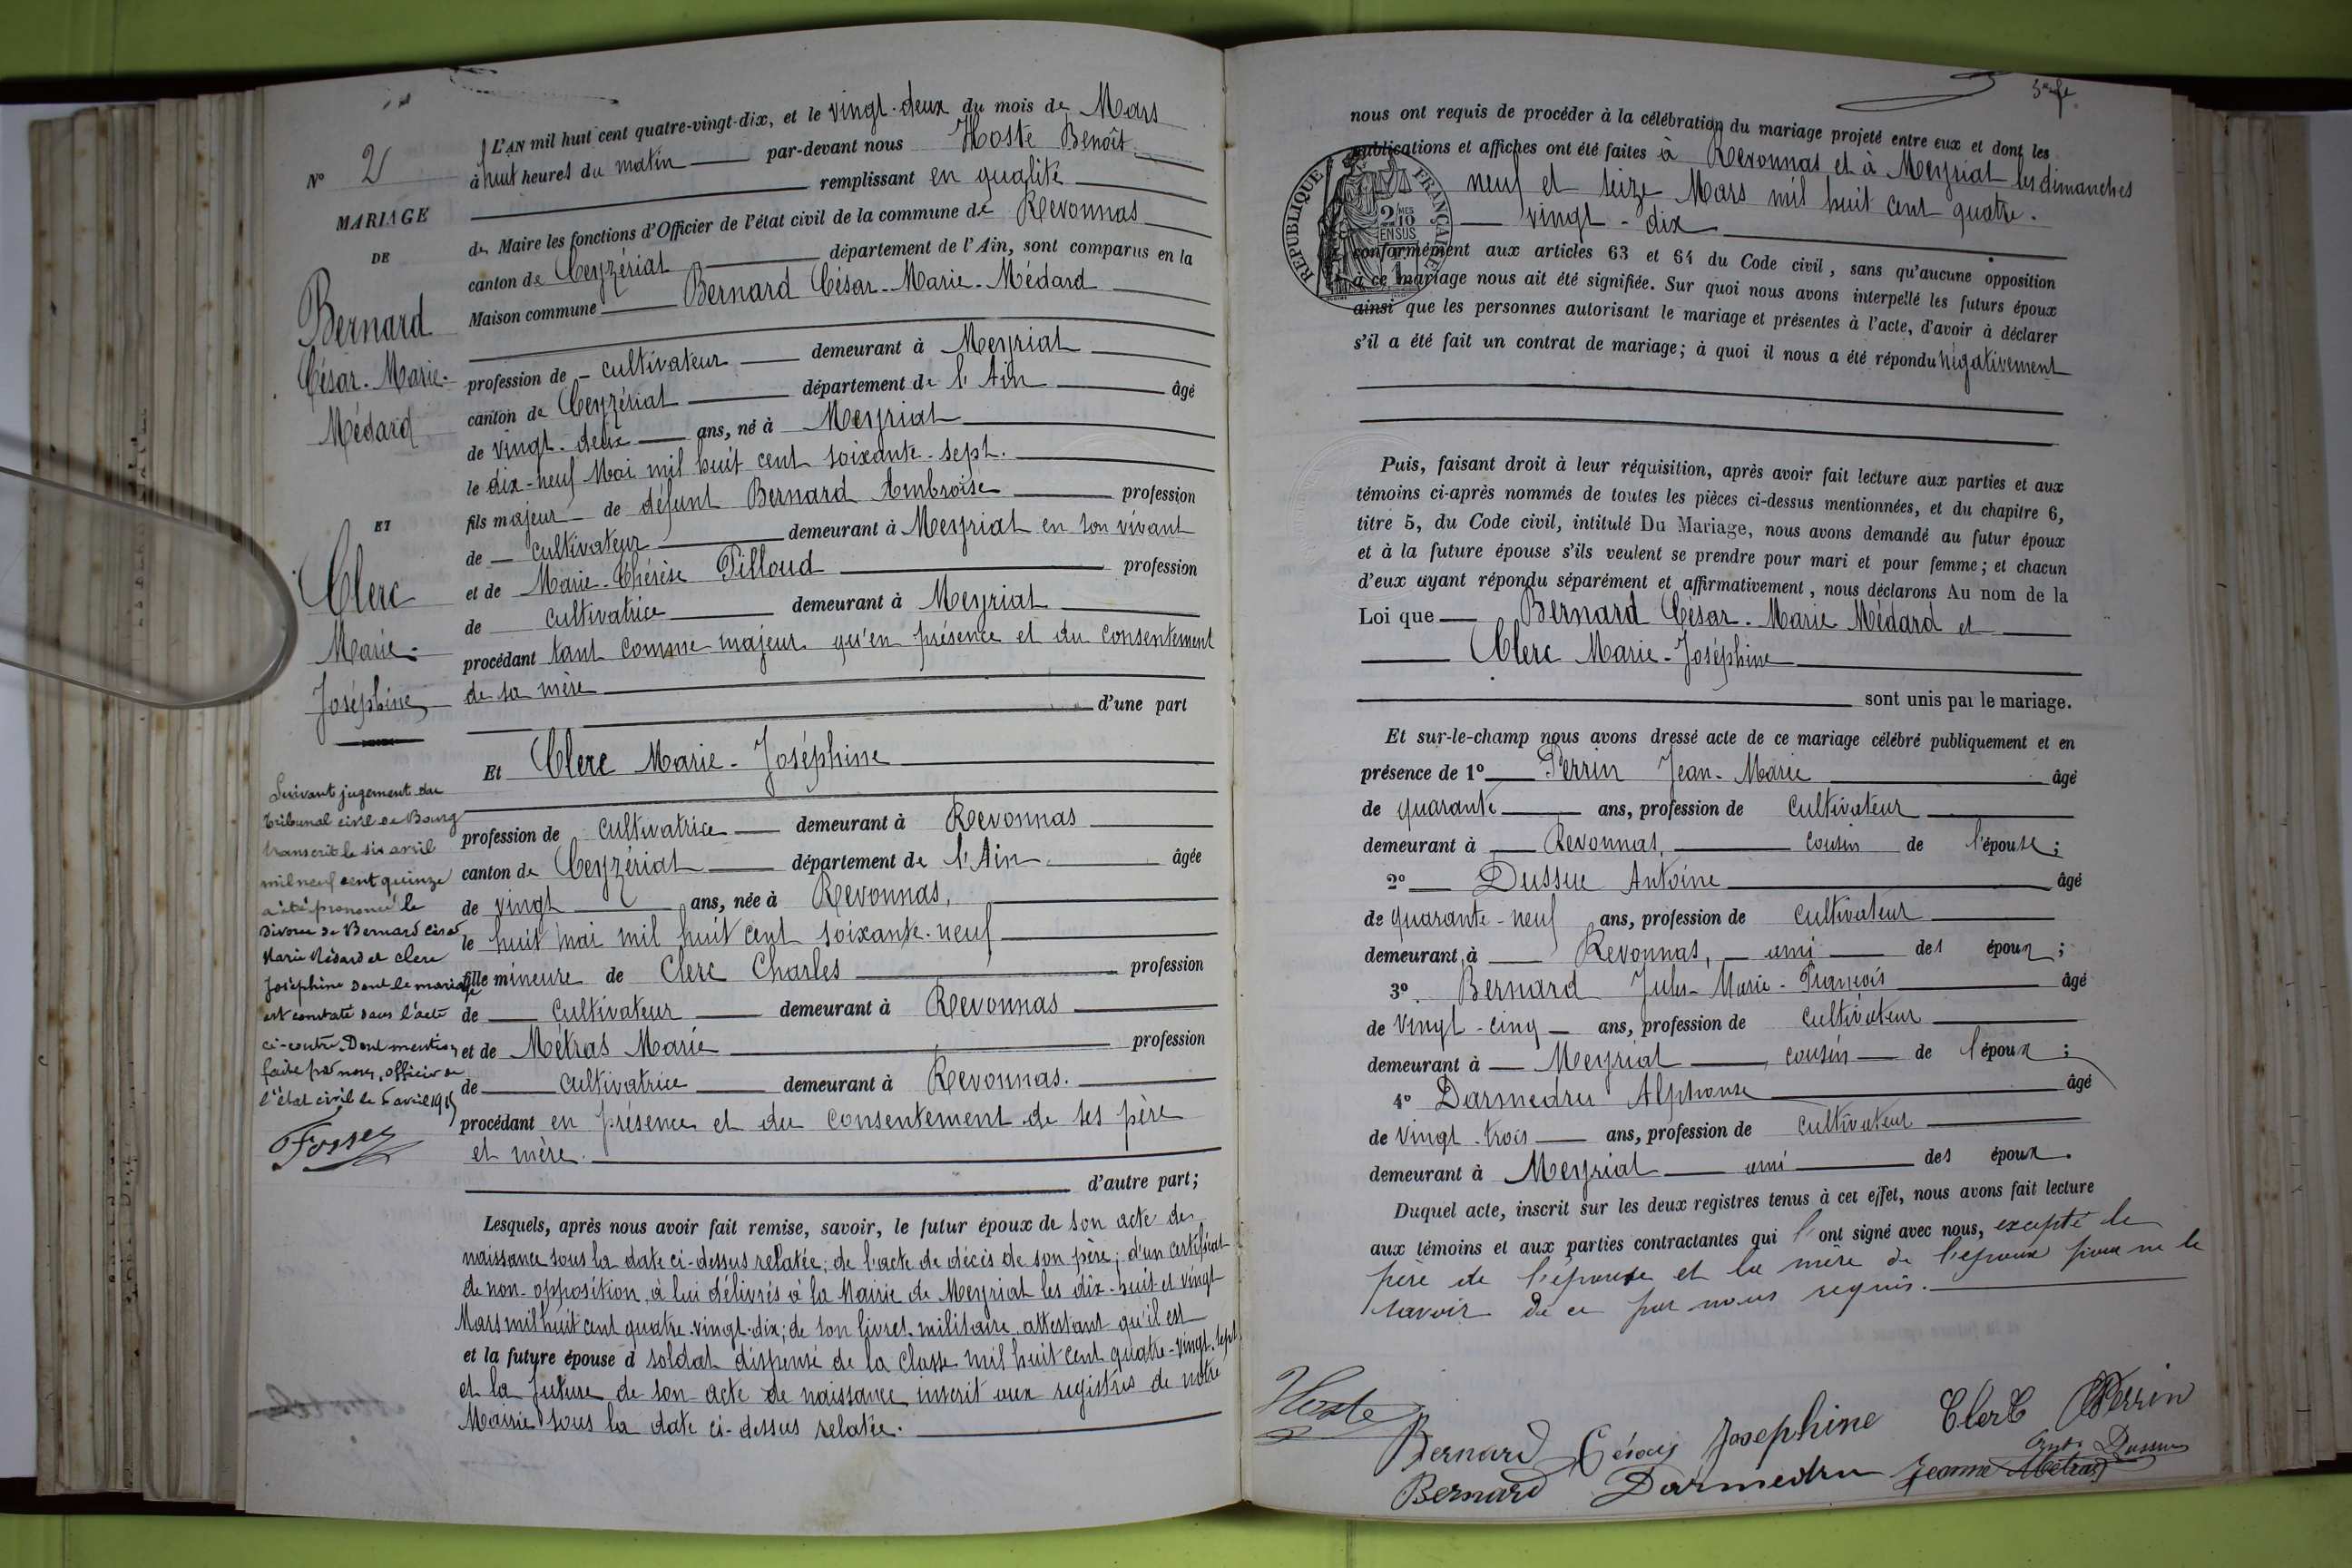 N° 2
MARIAGE
DE
Bernard
César-Marie-
Médard
ET
Clerc
Marie-
Joséphine
Suivant jugement du
tribunal civil de Bourg
transcrit le six avril
mil neuf cent quinze
a été prononcé le
divorce de Bernard César
Marie Médard et Clerc
Joséphine dont le mariage
est constaté dans l'acte
ci-contre. Dont mention
faite par nous, officier de
l'état civil le 6 avril 1915
L'AN mil huit cent quatre-vingt-dix, et le vingt-deux du mois de Mars
à huit heures du matin par-devant nous Hoste Benoît
remplissant en qualité
de Maire les fonctions d'Officier de l'état civil de la commune de Revonnas
canton de Ceyzériat département de l'Ain, sont comparus en la
Maison commune Bernard César-Marie-Médard
profession de cultivateur demeurant à Meyriat
canton de Ceyzériat département de l'Ain âgé
de vingt-deux ans, né à Meyriat
le dix-neuf Mai mil huit cent soixante-sept.
fils majeur de défunt Bernard Ambroise profession
de cultivateur demeurant à Meyriat en son vivant
et de Marie-Thérèse Pilloud profession
de cultivatrice demeurant à Meyriat
procédant tant comme majeur qu'en présence et du consentement
de sa mère
d'une part
Et Clerc Marie-Joséphine
profession de cultivatrice demeurant à Revonnas
canton de Ceyzériat département de l'Ain âgée
de vingt ans, née à Revonnas,
le huit mai mil huit cent soixante-neuf
fille mineure de Clerc Charles profession
de cultivateur demeurant à Revonnas
et de Métras Marie profession
de cultivatrice demeurant à Revonnas.
procédant en présence et du consentement de ses père
et mère.
d'autre part;
Lesquels, après nous avoir fait remise, savoir, le futur époux de son acte de
naissance sous la date ci-dessus relatée; de l'acte de décès de son père; d'un certificat
de non-opposition, à lui délivrés à la Mairie de Meyriat les dix-huit et vingt
Mars mil huit cent quatre-vingt-dix; de son livret militaire attestant qu'il est
et la future épouse d soldat dispensé de la classe mil huit cent quatre-vingt-sept
et la future de son acte de naissance inscrit aux registres de notre
Mairie sous la date ci-dessus relatée.
nous ont requis de procéder à la célébration du mariage projeté entre eux et dont les
publications et affiches ont été faites à Revonnas et à Meyriat les dimanches
neuf et seize Mars mil huit cent quatre-
vingt-dix
RÉPUBLIQUE FRANÇAISE
2/10
EN SUS
conformément aux articles 63 et 64 du Code civil, sans qu'aucune opposition
à ce mariage nous ait été signifiée. Sur quoi nous avons interpellé les futurs époux
ainsi que les personnes autorisant le mariage et présentes à l'acte, d'avoir à déclarer
s'il a été fait un contrat de mariage; à quoi il nous a été répondu négativement
Puis, faisant droit à leur réquisition, après avoir fait lecture aux parties et aux
témoins ci-après nommés de toutes les pièces ci-dessus mentionnées, et du chapitre 6,
titre 5, du Code civil, intitulé Du Mariage, nous avons demandé au futur époux
et à la future épouse s'ils veulent se prendre pour mari et pour femme; et chacun
d'eux ayant répondu séparément et affirmativement, nous déclarons Au nom de la
Loi que Bernard César-Marie Médard et
Clerc Marie-Joséphine
sont unis par le mariage.
Et sur-le-champ nous avons dressé acte de ce mariage célébré publiquement et en
présence de 1° Perrin Jean-Marie âgé
de quarante ans, profession de cultivateur
demeurant à Revonnas, cousin de l'épouse;
2° Dussue Antoine âgé
de quarante-neuf ans, profession de cultivateur
demeurant à Revonnas, ami des époux;
3° Bernard Jules-Marie-François âgé
de vingt-cinq ans, profession de cultivateur
demeurant à Meyriat, cousin de l'époux;
4° Darmedru Alphonse âgé
de vingt-trois ans, profession de cultivateur
demeurant à Meyriat ami des époux.
Duquel acte, inscrit sur les deux registres tenus à cet effet, nous avons fait lecture
aux témoins et aux parties contractantes qui l'ont signé avec nous, excepté le
père de l'épouse et la mère de l'époux pour ne le
savoir de ce par nous requis.
Hoste
Bernard César Josephine Clerc Perrin
Bernard Darmedru Jeanne Métras